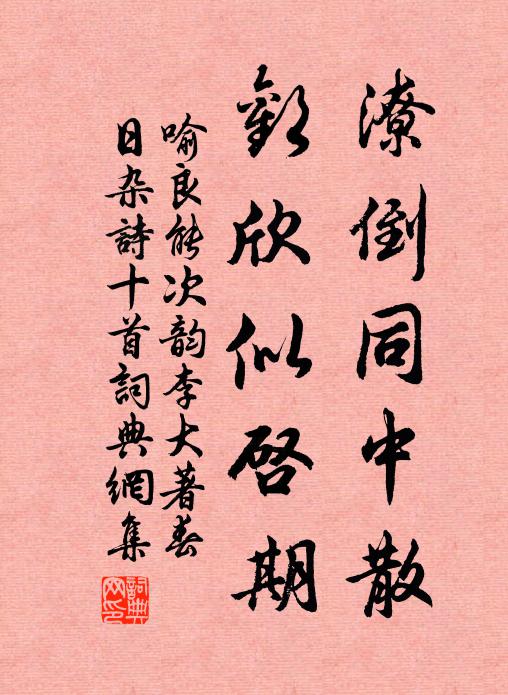 潦倒同中散
歡欣似啓期
喻良能次韵李大著春
日杂詩十首詞典網集
詞典網印